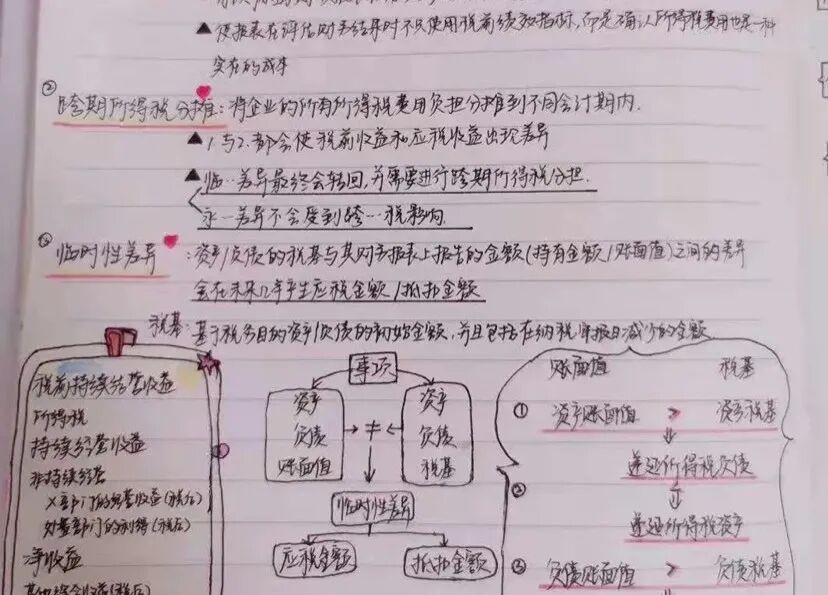 ▲使报表在评估财务结果时不只使用税前绩效指标,而是确认所得税费用也是一种
实在的成本
② 跨期所得税分摊:将企业的所有所得税费用负担分摊到不同会计期内.
▲1.与2.都会使税前收益和应税收益出现差异
▲临··差异最终会转回,并需要进行跨期所得税分担.
永一差异不会受到跨···税影响.
③ 临时性差异:资产/负债的税基与其财务报表上报告的金额(持有金额/账面值)之间的差异
会在未来几年产生应税金额/抵扣金额
税基:基于税务目的资产/负债的初始金额,并且包括在纳税申报日减少的金额
税前持续经营收益
所得税
持续经营收益
非持续经营
X部门的经营收益(税后)
处置部门的利得(税后)
净收益
其他综合收益(税后)
事项
资产
负债
账面值
≠
资产
负债
税基
临时性差异
应税金额
抵扣金额
账面值 税基
① 资产账面值 > 资产税基
递延所得税负债
②
递延所得税资产
③ 负债账面值 > 负债税基